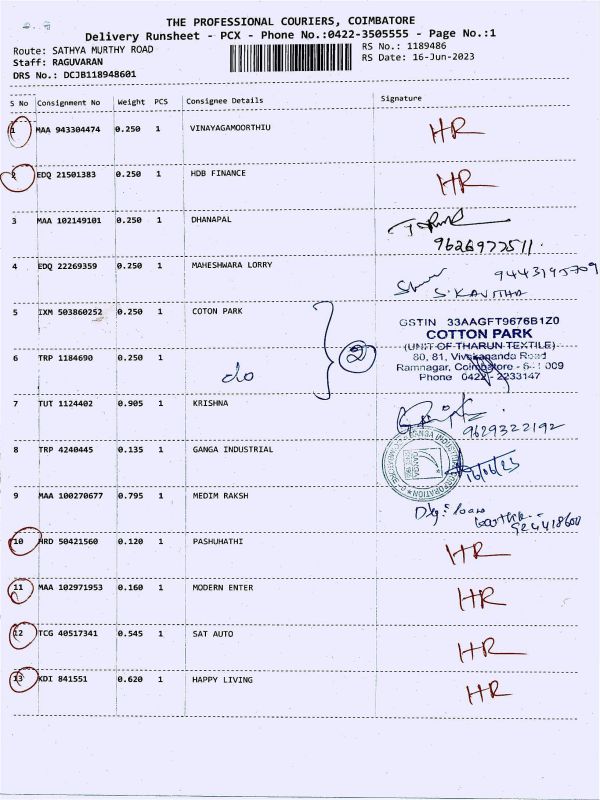 THE PROFESSIONAL COURIERS, COIMBATORE
Delivery Runsheet - PCX - Phone No.:0422-3505555 - Page No.:1
Route: SATHYA MURTHY ROAD
RS No.: 1189486
Staff: RAGUVARAN
RS Date: 16-Jun-2023
DRS No.: DCJB118948601
S No Consignment No Weight PCS Consignee Details Signature
1 MAA 943304474 0.250 1 VINAYAGAMOORTHIU HR
2 EDQ 21501383 0.250 1 HDB FINANCE HR
3 MAA 102149101 0.250 1 DHANAPAL
9626977511.
4 EDQ 22269359 0.250 1 MAHESHWARA LORRY 9443195709
S.KAVITHA
5 IXM 503860252 0.250 1 COTON PARK
GSTIN 33AAGFT9676B1Z0
COTTON PARK
(UNIT OF THARUN TEXTILE)
6 TRP 1184690 0.250 1 do 2
80, 81, Vivekananda Road
Ramnagar, Coimbatore - 641 009
Phone 0422 - 2233147
7 TUT 1124402 0.905 1 KRISHNA
9629322192
8 TRP 4240445 0.135 1 GANGA INDUSTRIAL
GANGA
16/06/23
9 MAA 100270677 0.795 1 MEDIM RAKSH
10 HRD 50421560 0.120 1 PASHUHATHI HR
11 MAA 102971953 0.160 1 MODERN ENTER HR
12 TCG 40517341 0.545 1 SAT AUTO HR
13 KDI 841551 0.620 1 HAPPY LIVING HR